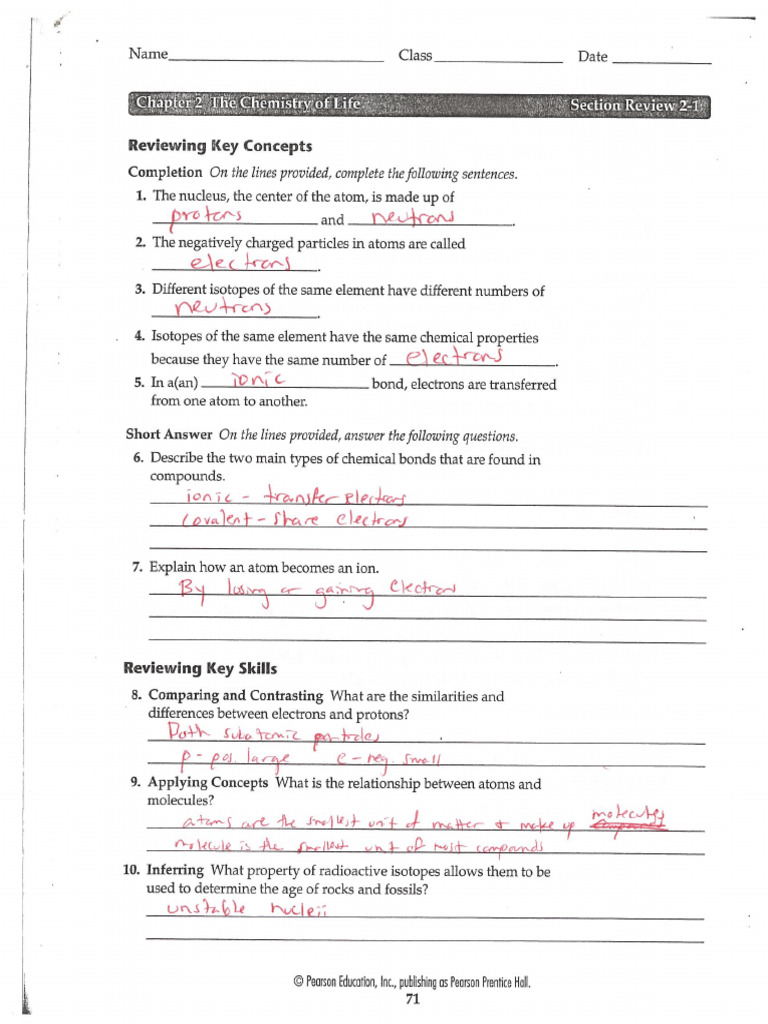 Name Class Date
Chapter 2 The Chemistry of Life Section Review 2-1
Reviewing Key Concepts
Completion On the lines provided, complete the following sentences.
1. The nucleus, the center of the atom, is made up of
protons and neutrons.
2. The negatively charged particles in atoms are called
electrons.
3. Different isotopes of the same element have different numbers of
neutrons.
4. Isotopes of the same element have the same chemical properties
because they have the same number of electrons.
5. In a(an) ionic bond, electrons are transferred
from one atom to another.
Short Answer On the lines provided, answer the following questions.
6. Describe the two main types of chemical bonds that are found in
compounds.
ionic - transfer electrons
covalent - share electrons
7. Explain how an atom becomes an ion.
By losing or gaining electrons
Reviewing Key Skills
8. Comparing and Contrasting What are the similarities and
differences between electrons and protons?
Both subatomic particles
p - pos. large e - neg. small
9. Applying Concepts What is the relationship between atoms and
molecules?
atoms are the smallest unit of matter & make up molecules
molecule is the smallest unit of most compounds
10. Inferring What property of radioactive isotopes allows them to be
used to determine the age of rocks and fossils?
unstable nucleii
© Pearson Education, Inc., publishing as Pearson Prentice Hall.
71